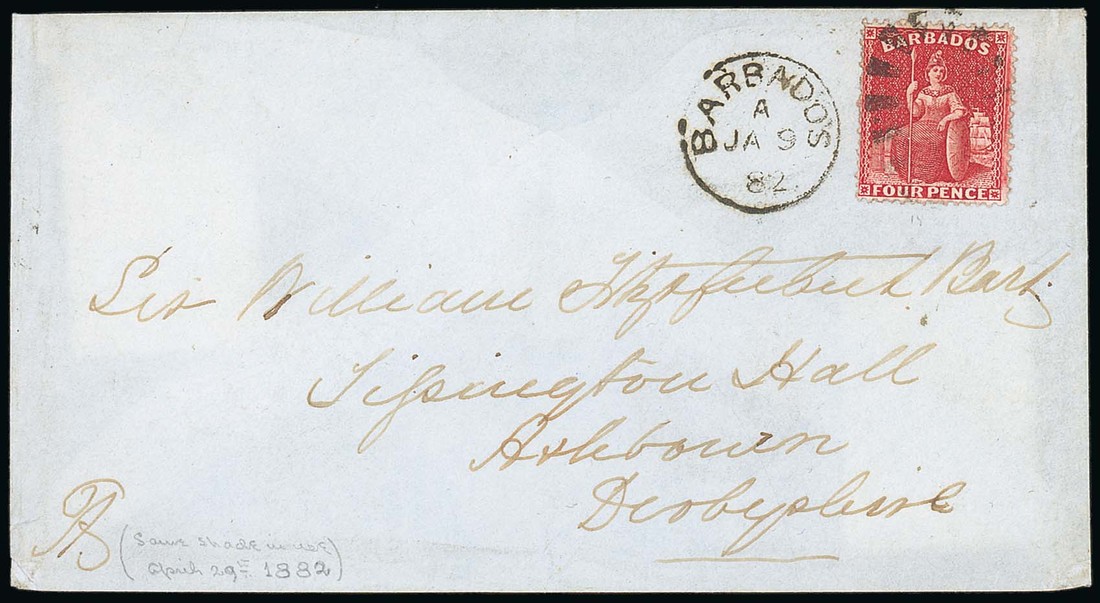 BARBADOS
FOUR PENCE
BARBADOS
A
JA 9
82
Sir William Fitzherbert Bart
Tissington Hall
Ashbourn
Derbyshire
(Same shade in use
April 29th 1882)